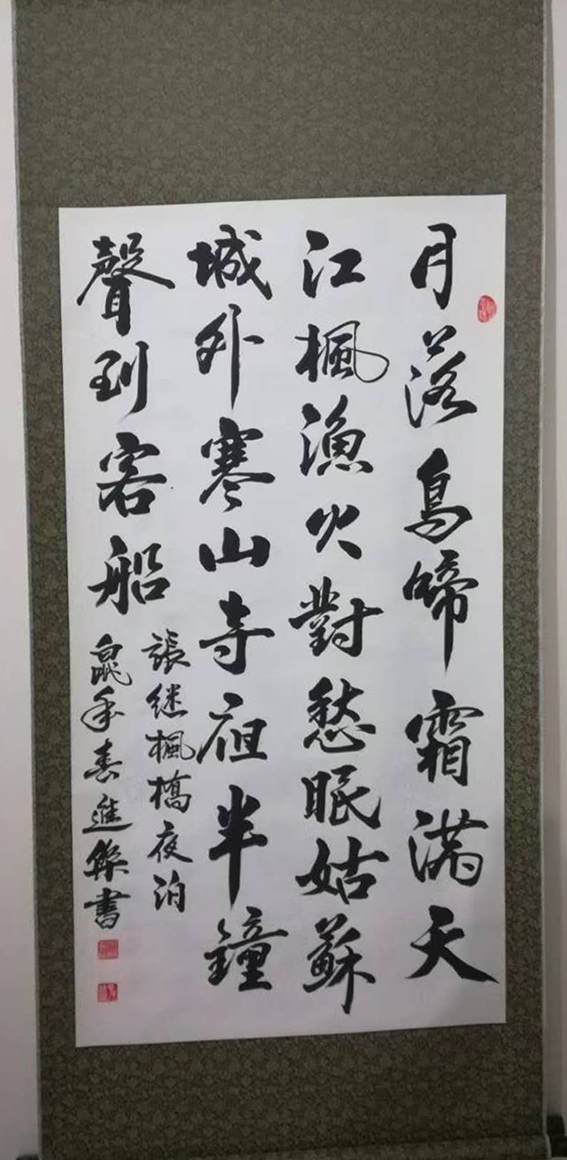 月落烏啼霜滿天
江楓漁火對愁眠姑蘇
城外寒山寺半鐘
聲到客船
張继楓橋夜泊
鼠年春進書